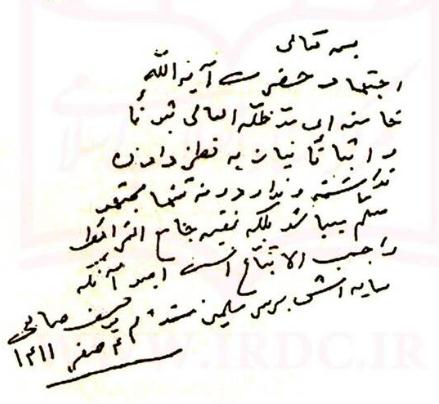 بسمه تعالی
اجتهاد حضرت آیة اللّه
خامنه ای مدّ ظلّه العالی ثبوتاً
و اثباتاً نیاز به نظر دادن
نداشته و ندارد و نه تنها مجتهد
مسلّم میباشد بلکه فقیه جامع الشرائط
واجب الاتباع است امید آنکه
سایه اش بر سر مسلمین مستدام یوسف صانعی
۴ صفر ۱۴۱۱
WWW.IRDC.IR